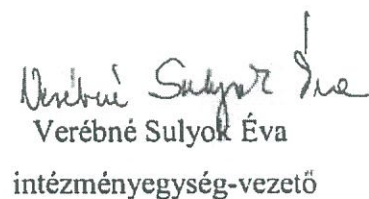 Verébné Sulyok Éva
Verébné Sulyok Éva
intézményegység-vezető